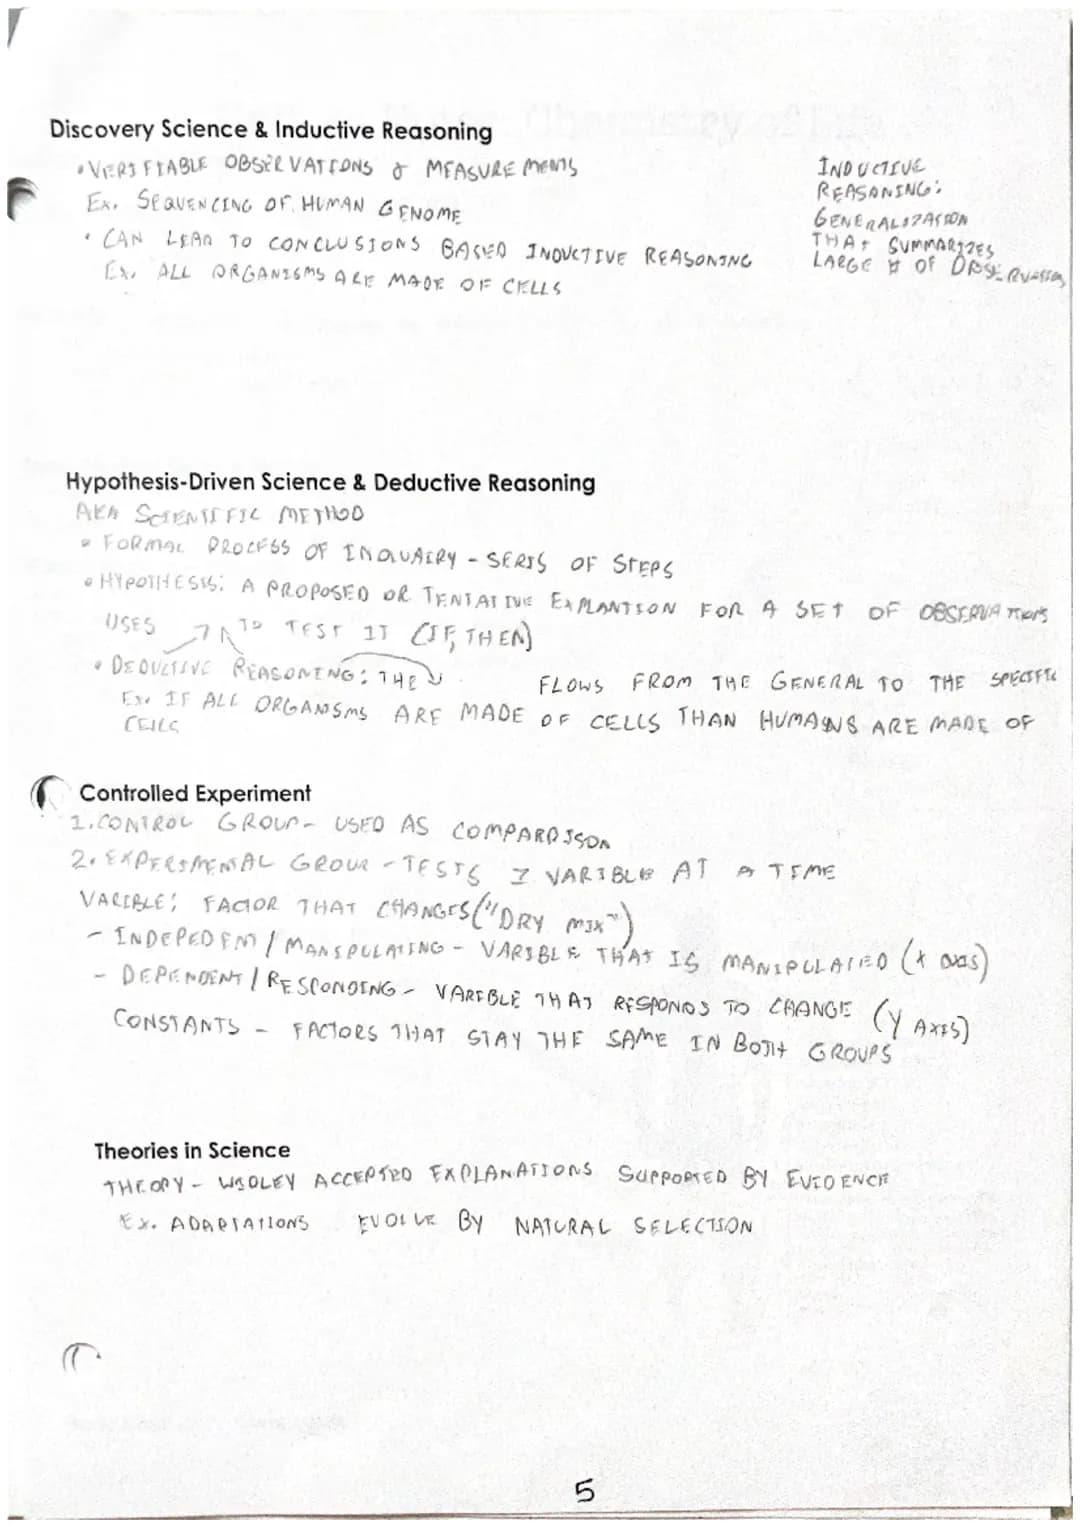 Discovery Science & Inductive Reasoning
• VERIFIABLE OBSERVATIONS & MEASUREMENTS
Ex. SEQUENCING OF HUMAN GENOME
• CAN LEAD TO CONCLUSIONS BASED INDUCTIVE REASONING
Ex. ALL ORGANISMS ARE MADE OF CELLS
INDUCTIVE
REASONING:
GENERALIZATION
THAT SUMMARIZES
LARGE # OF OBSERVATIONS
Hypothesis-Driven Science & Deductive Reasoning
AKA SCIENTIFIC METHOD
• FORMAL PROCESS OF INQUAIRY - SERIS OF STEPS
• HYPOTHESIS: A PROPOSED OR TENTATIVE EXPLANTION FOR A SET OF OBSERVATIONS
USES TO TEST IT (IF, THEN)
• DEDUCTIVE REASONING: THE FLOWS FROM THE GENERAL TO THE SPECIFIC
Ex. IF ALL ORGANISMS ARE MADE OF CELLS THAN HUMANS ARE MADE OF
CELLS
Controlled Experiment
1. CONTROL GROUP - USED AS COMPARISON
2. EXPERIMENTAL GROUP - TESTS 1 VARIBLE AT A TIME
VARIBLE: FACTOR THAT CHANGES ("DRY MIX")
- INDEPEDENT / MANIPULATING - VARIBLE THAT IS MANIPULATED (X AXIS)
- DEPENDENT / RESPONDING - VARIBLE THAT RESPONDS TO CHANGE (Y AXIS)
CONSTANTS - FACTORS THAT STAY THE SAME IN BOTH GROUPS
Theories in Science
THEORY - WIDLEY ACCEPTED EXPLANATIONS SUPPORTED BY EVIDENCE
Ex. ADAPTATIONS EVOLVE BY NATURAL SELECTION
5